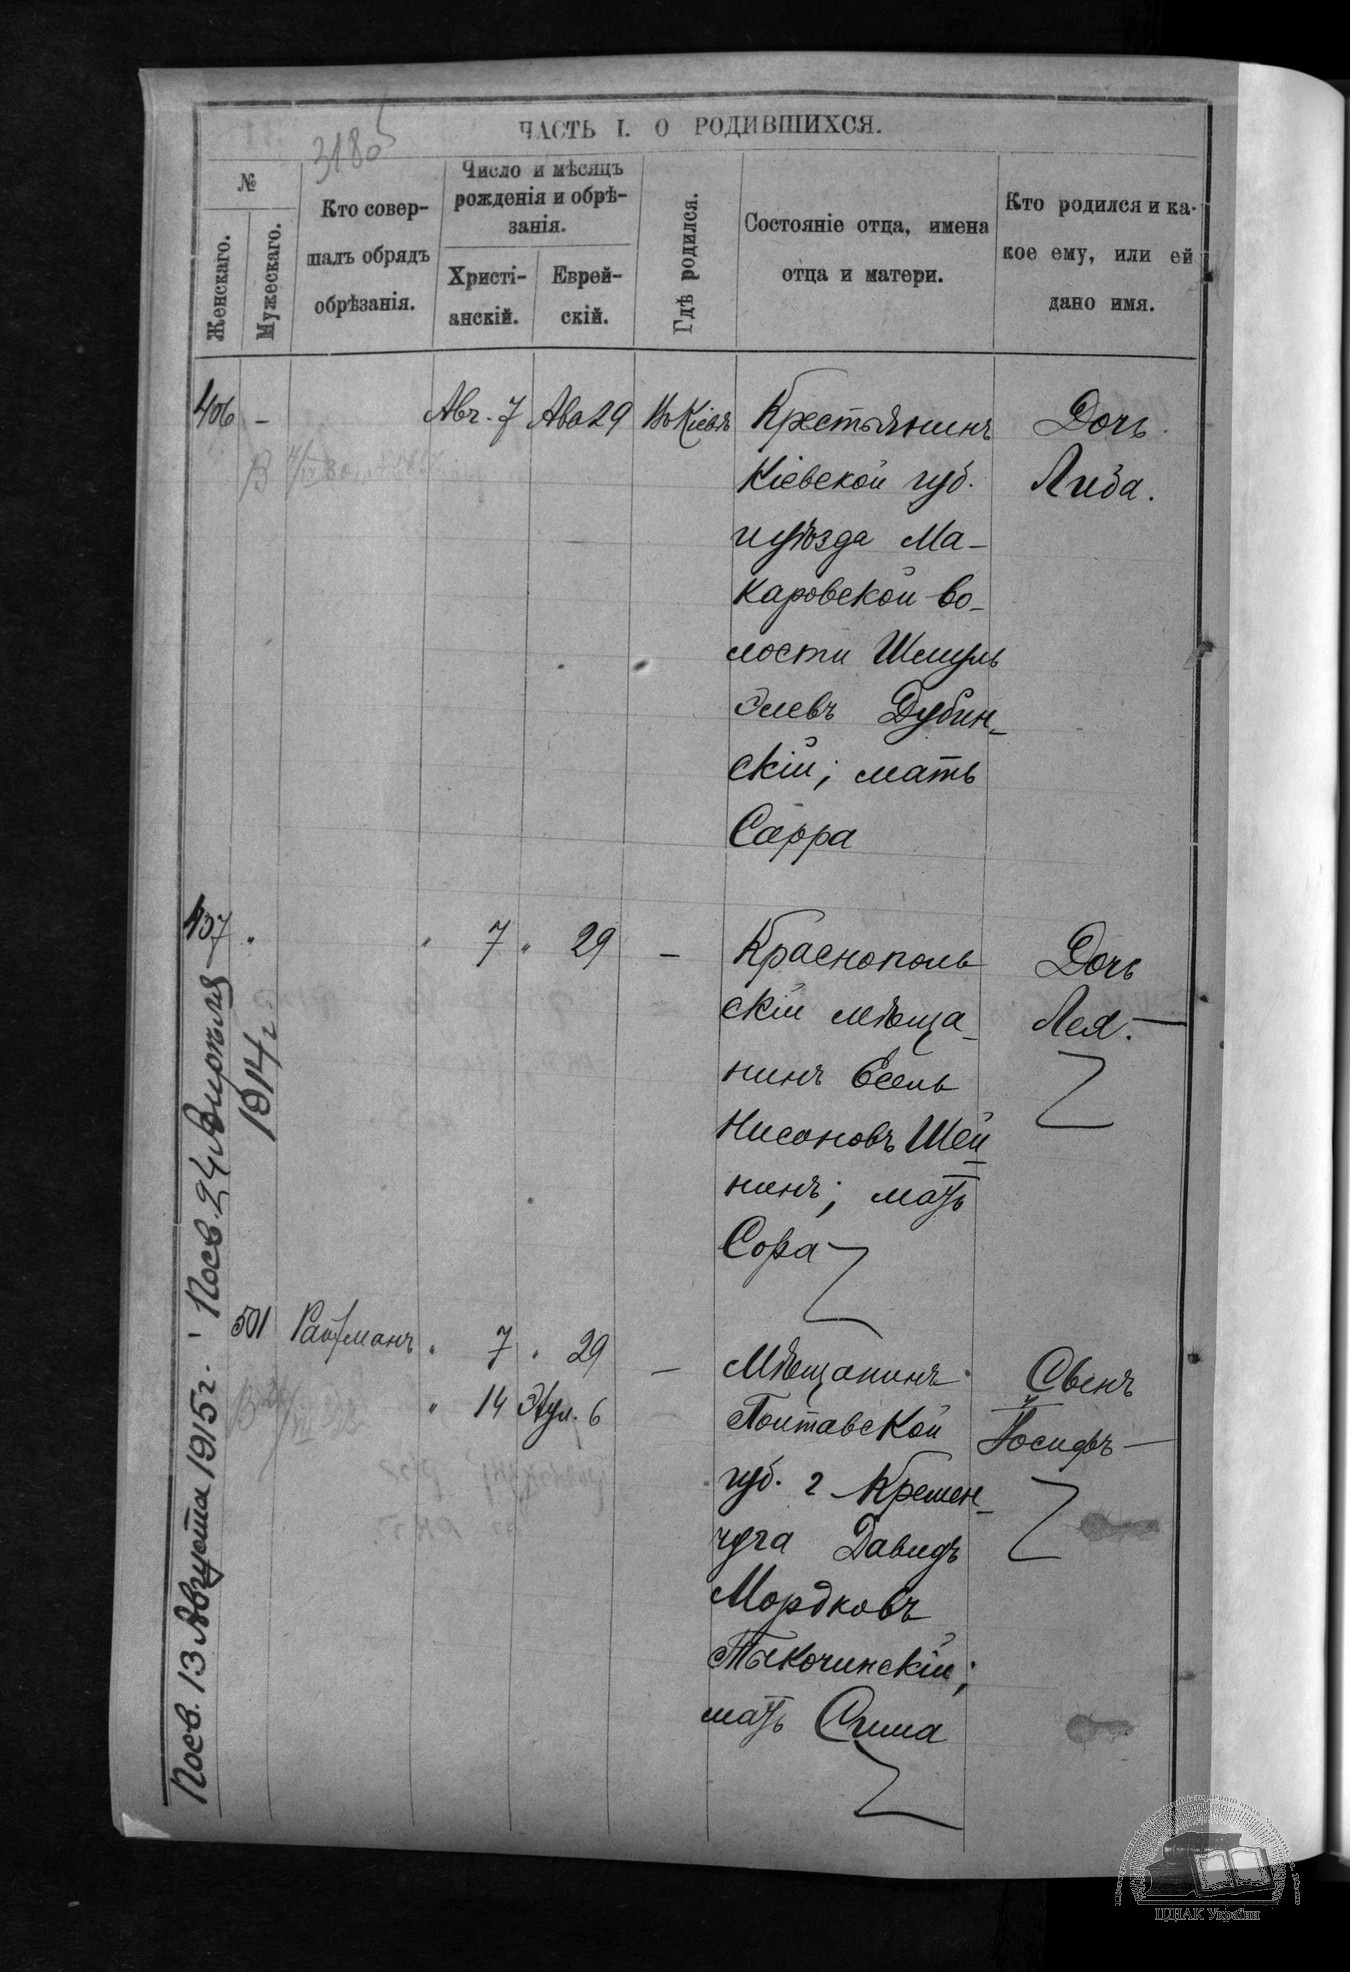 ЧАСТЬ I. О РОДИВШИХСЯ.
3180
№
Женскаго.
Мужескаго.
Кто совер-
шалъ обрядъ
обрѣзанія.
Число и мѣсяцъ
рожденія и обрѣ-
занія.
Христі-
анскій.
Еврей-
скій.
Гдѣ родился.
Состояніе отца, имена
отца и матери.
Кто родился и ка-
кое ему, или ей
дано имя.
406 – Авг. 7 Ава 29 Въ Кіевѣ
Крестьянинъ
Кіевской губ.
и уѣзда Ма-
каровской во-
лости Шмуль
Элевъ Дубин-
скій; мать
Сарра
Дочь
Либа.
407 " " 7 " 29 –
Краснополь
скій мѣща-
нинъ Есель
Нисоновъ Шей-
нинъ; мать
Сора
Дочь
Лея. –
501 " 7 " 29 –
" 14 Элул. 6
Мѣщанинъ
Полтавской
губ. г Кремен-
чуга Давидъ
Мордковъ
Тыкочинскій;
мать Сима
Сынъ
Іосифъ –
Посв. 13 Августа 1915 г. Посв. 24 Апрѣля
1914 г
ЦДІАК України